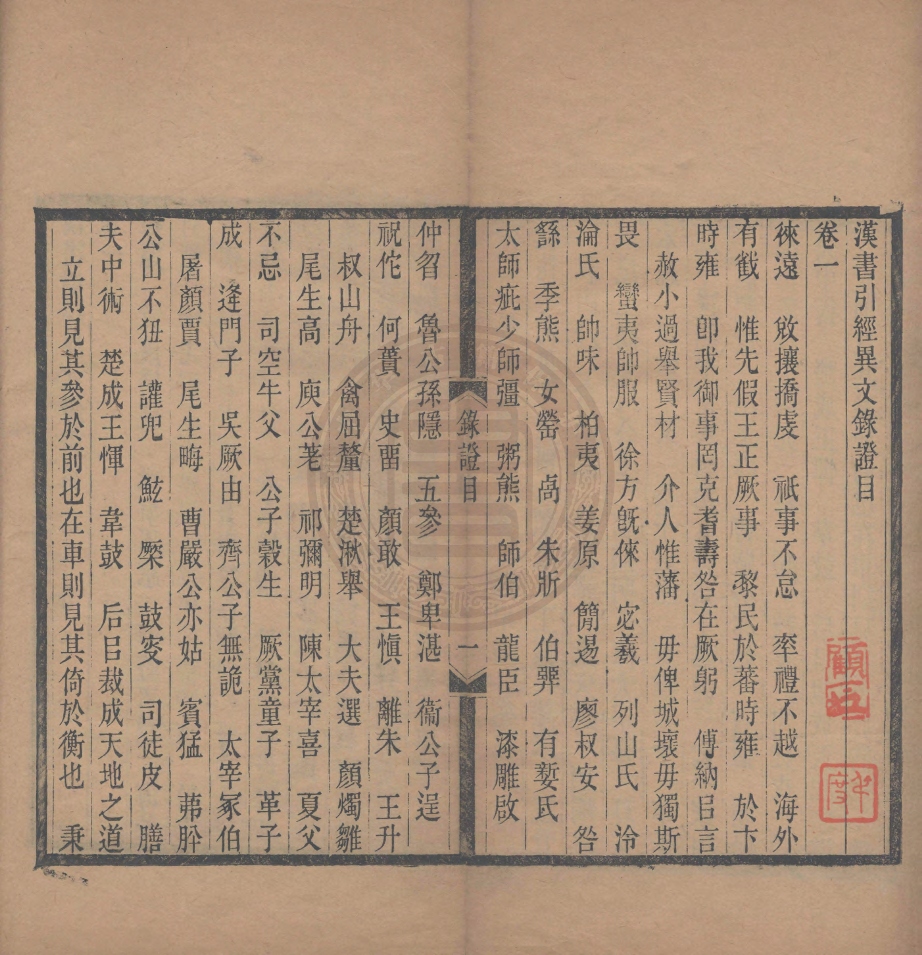 漢書引經異文錄證目
卷一
徠遠　敓攘撟虔　祇事不怠　率禮不越　海外
有截　惟先假王正厥事　黎民於蕃時雍　於卞
時雍　卽我御事罔克耆壽咎在厥躬　傅納㠯言
赦小過舉賢材　介人惟藩　毋俾城壞毋獨斯
畏　蠻夷帥服　徐方旣倈　宓羲　列山氏　泠
淪氏　帥味　柏夷　姜原　簡逷　廖叔安　咎
繇　季熊　女㽦　禼　朱斨　伯
有㜪氏
太師疵少師彊　粥熊　師伯　龍臣　漆雕啟
錄證目　一
仲㕽　魯公孫隱　五參　鄭卑湛　衞公子逞
祝佗　何蕢　史㽞　顏敢　王愼　離朱　王升
叔山舟　禽屈釐　楚湫舉　大夫選　顏燭雛
尾生高　庾公差　祁彌明　陳太宰喜　夏父
不忌　司空牛父　公子穀生　厥黨童子　革子
成　逢門子　吳厥由　齊公子無詭　太宰冢伯
屠顏賈　尾生晦　曹嚴公亦姑　賓猛　茀肸
公山不狃　讙兜　鮌　㮚　鼓叜　司徒皮　膳
夫中術　楚成王惲　韋鼓　后㠯裁成天地之道
立則見其參於前也在車則見其倚於衡也　秉